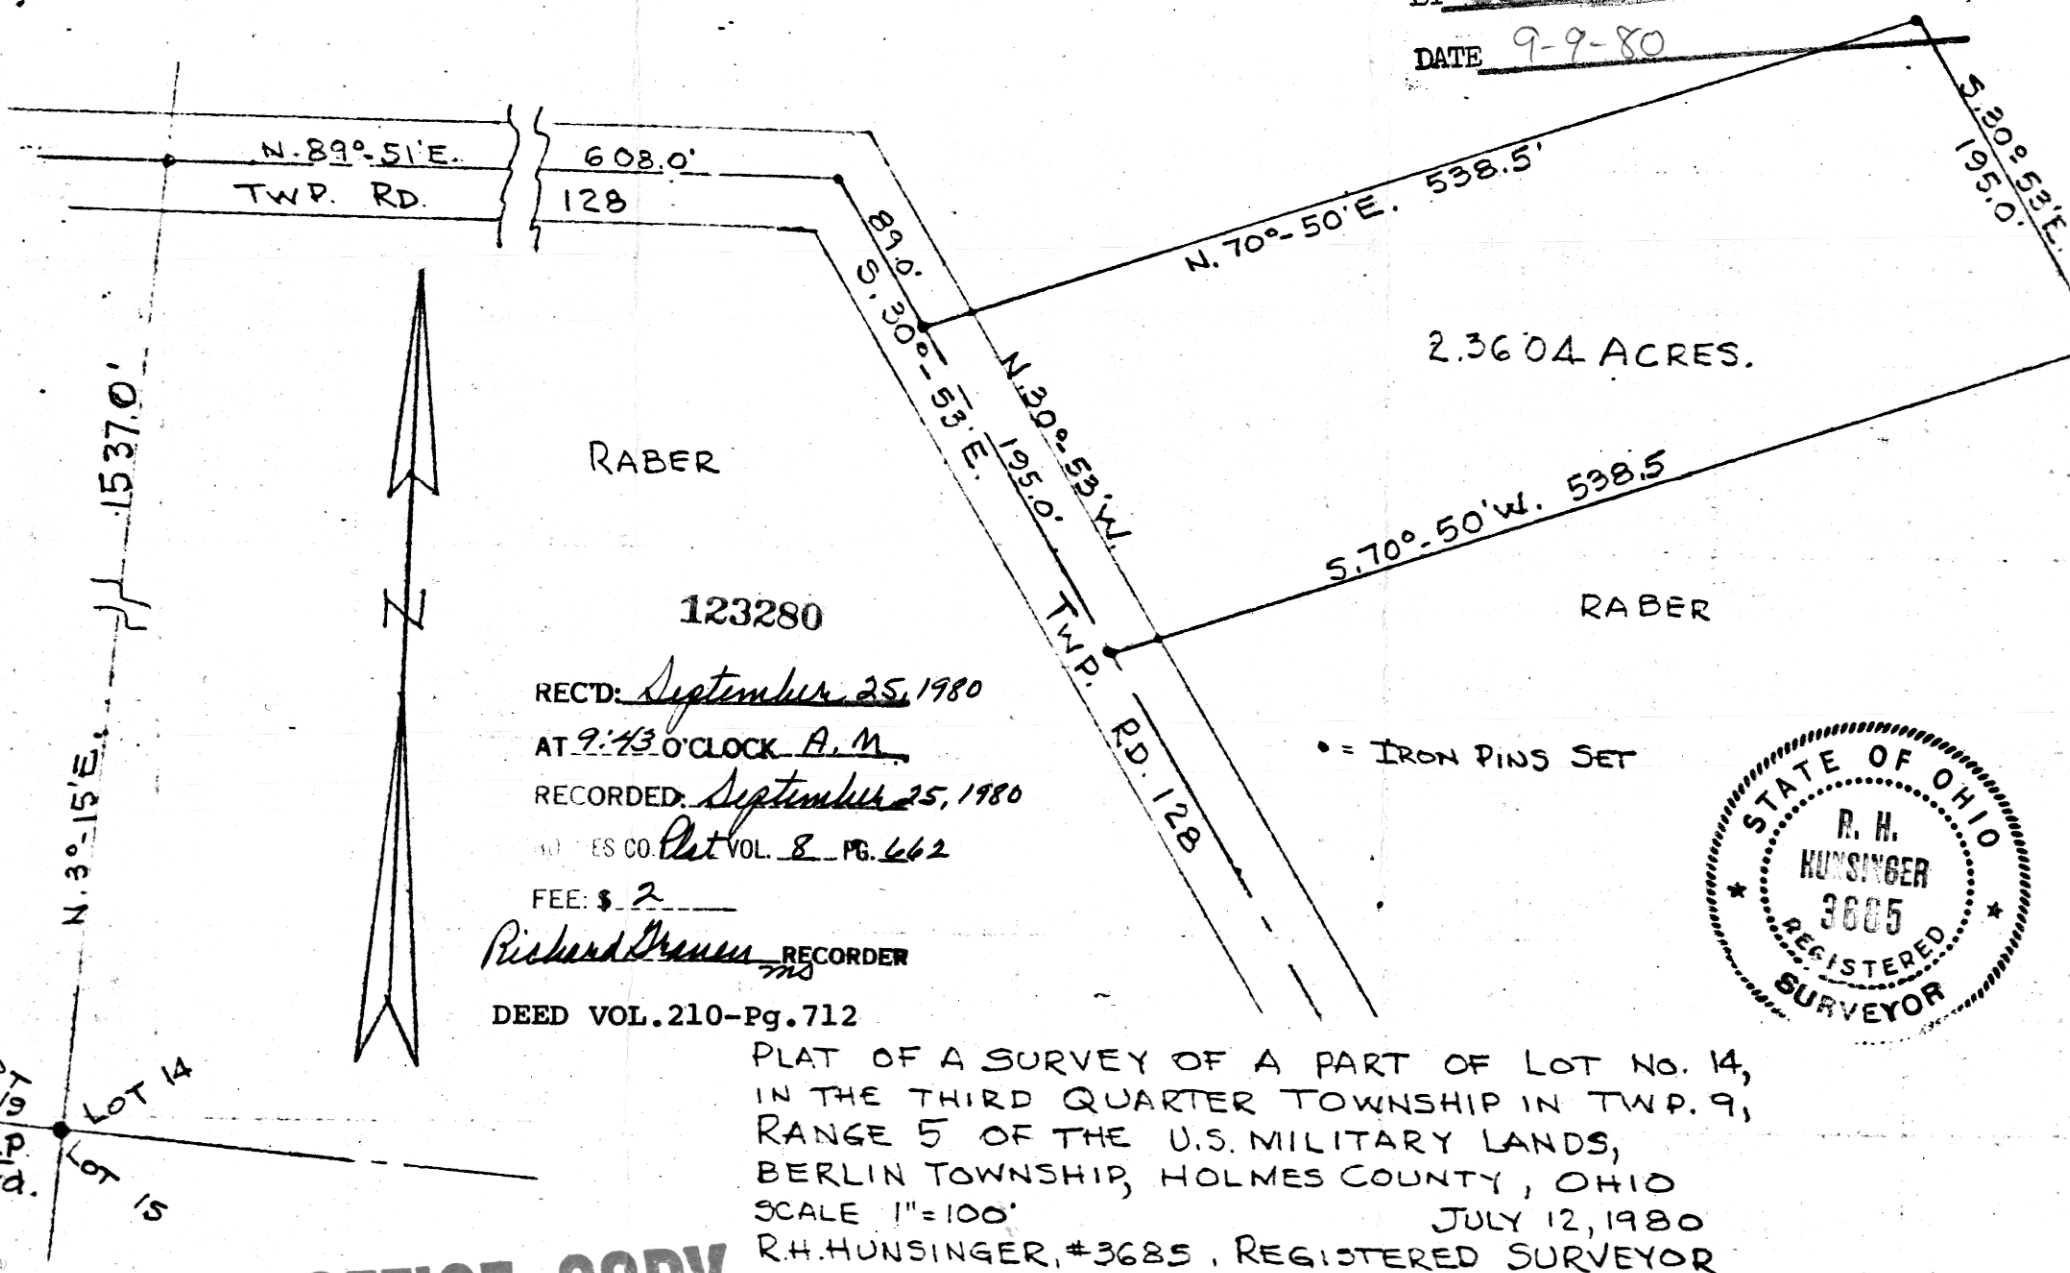 DATE 9-9-80
N. 89°-51'E. 608.0'
TWP. RD. 128
89.0'
S. 30°-53'E.
195.0'
N. 30°-53'W.
N. 70°-50'E. 538.5'
S. 30°-53'E.
195.0'
2.3604 ACRES.
S. 70°-50'W. 538.5
RABER
RABER
TWP. RD. 128
1537.0'
N. 3°-15'E.
N
123280
REC'D: September 25, 1980
AT 9:43 O'CLOCK A.M.
RECORDED: September 25, 1980
ES CO. Plat VOL. 8 PG. 662
FEE: $ 2
Richard RECORDER
DEED VOL.210-Pg.712
• = IRON PINS SET
STATE OF OHIO
R. H.
HUNSINGER
3685
REGISTERED
SURVEYOR
LOT 14
LOT 15
PLAT OF A SURVEY OF A PART OF LOT NO. 14,
IN THE THIRD QUARTER TOWNSHIP IN TWP. 9,
RANGE 5 OF THE U.S. MILITARY LANDS,
BERLIN TOWNSHIP, HOLMES COUNTY, OHIO
SCALE 1"=100' JULY 12, 1980
R.H. HUNSINGER, #3685, REGISTERED SURVEYOR
COPY